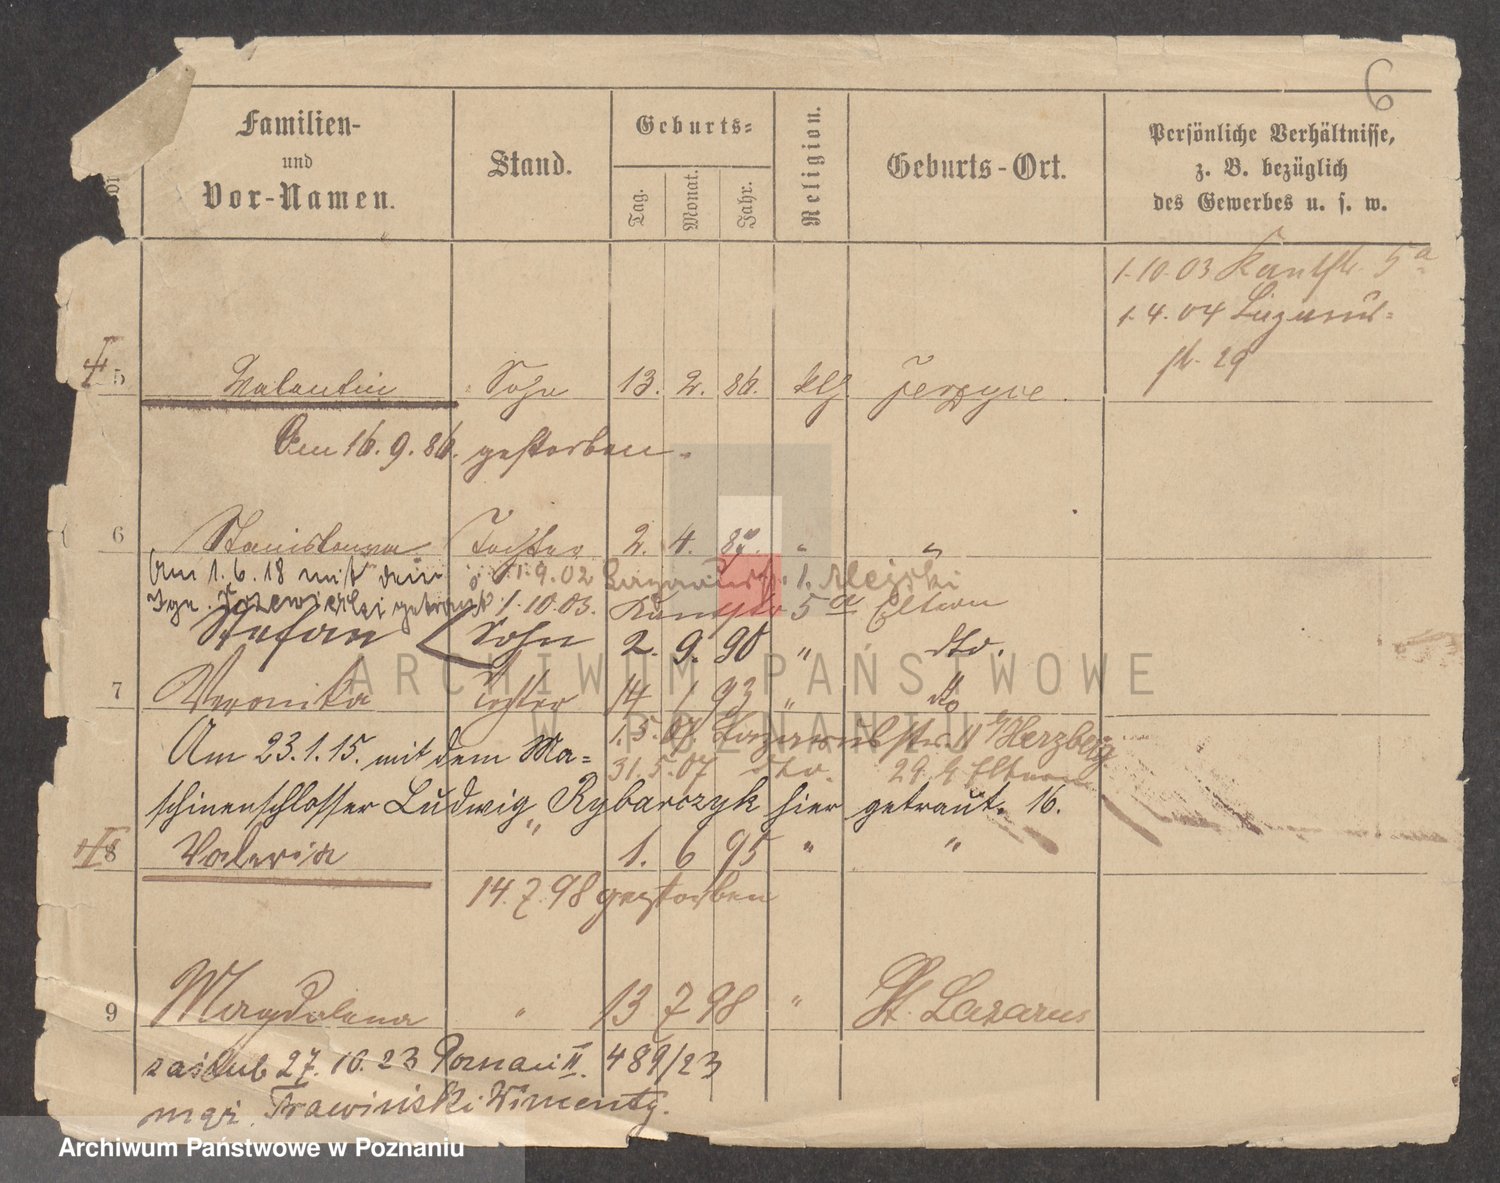 6
Familien-
und
Vor-Namen.
Stand.
Geburts-
Tag.
Monat.
Jahr.
Religion.
Geburts-Ort.
Persönliche Verhältnisse,
z. B. bezüglich
des Gewerbes u. s. w.
1.10.03 Kantstr. 5a
1.4.04 Lazarus-
str. 29
5 Valentin Sohn 13. 2. 86. kth Jerzyce.
Am 16.9.86. gestorben.
6 Stanislawa Tochter 2. 4. 87. " "
Am 1.6.18 mit dem 1.9.02 Lazarusstr. 1.
Ign. getraut 1.10.03. Kantstr 5a Eltern
Stefan Sohn 2. 9. 90 " dto.
7 Veronika Tochter 14 1 93 " do
1.5.07 Lazarusstr. 11 b/Herzberg
Am 23.1.15. mit dem Ma=
31.5.07 dto. 29 b Eltern
schinenschlosser Ludwig Rybarczyk hier getraut. 16.
8 Valeria " 1. 6 95 " "
14.7.98 gestorben
9 Magdalena " 13 7 98 " St. Lazarus
zaślub 27.10.23 Poznań II. 489/23
mąż. Trawiński Wincenty.
ARCHIWUM PAŃSTWOWE
W POZNANIU
Archiwum Państwowe w Poznaniu